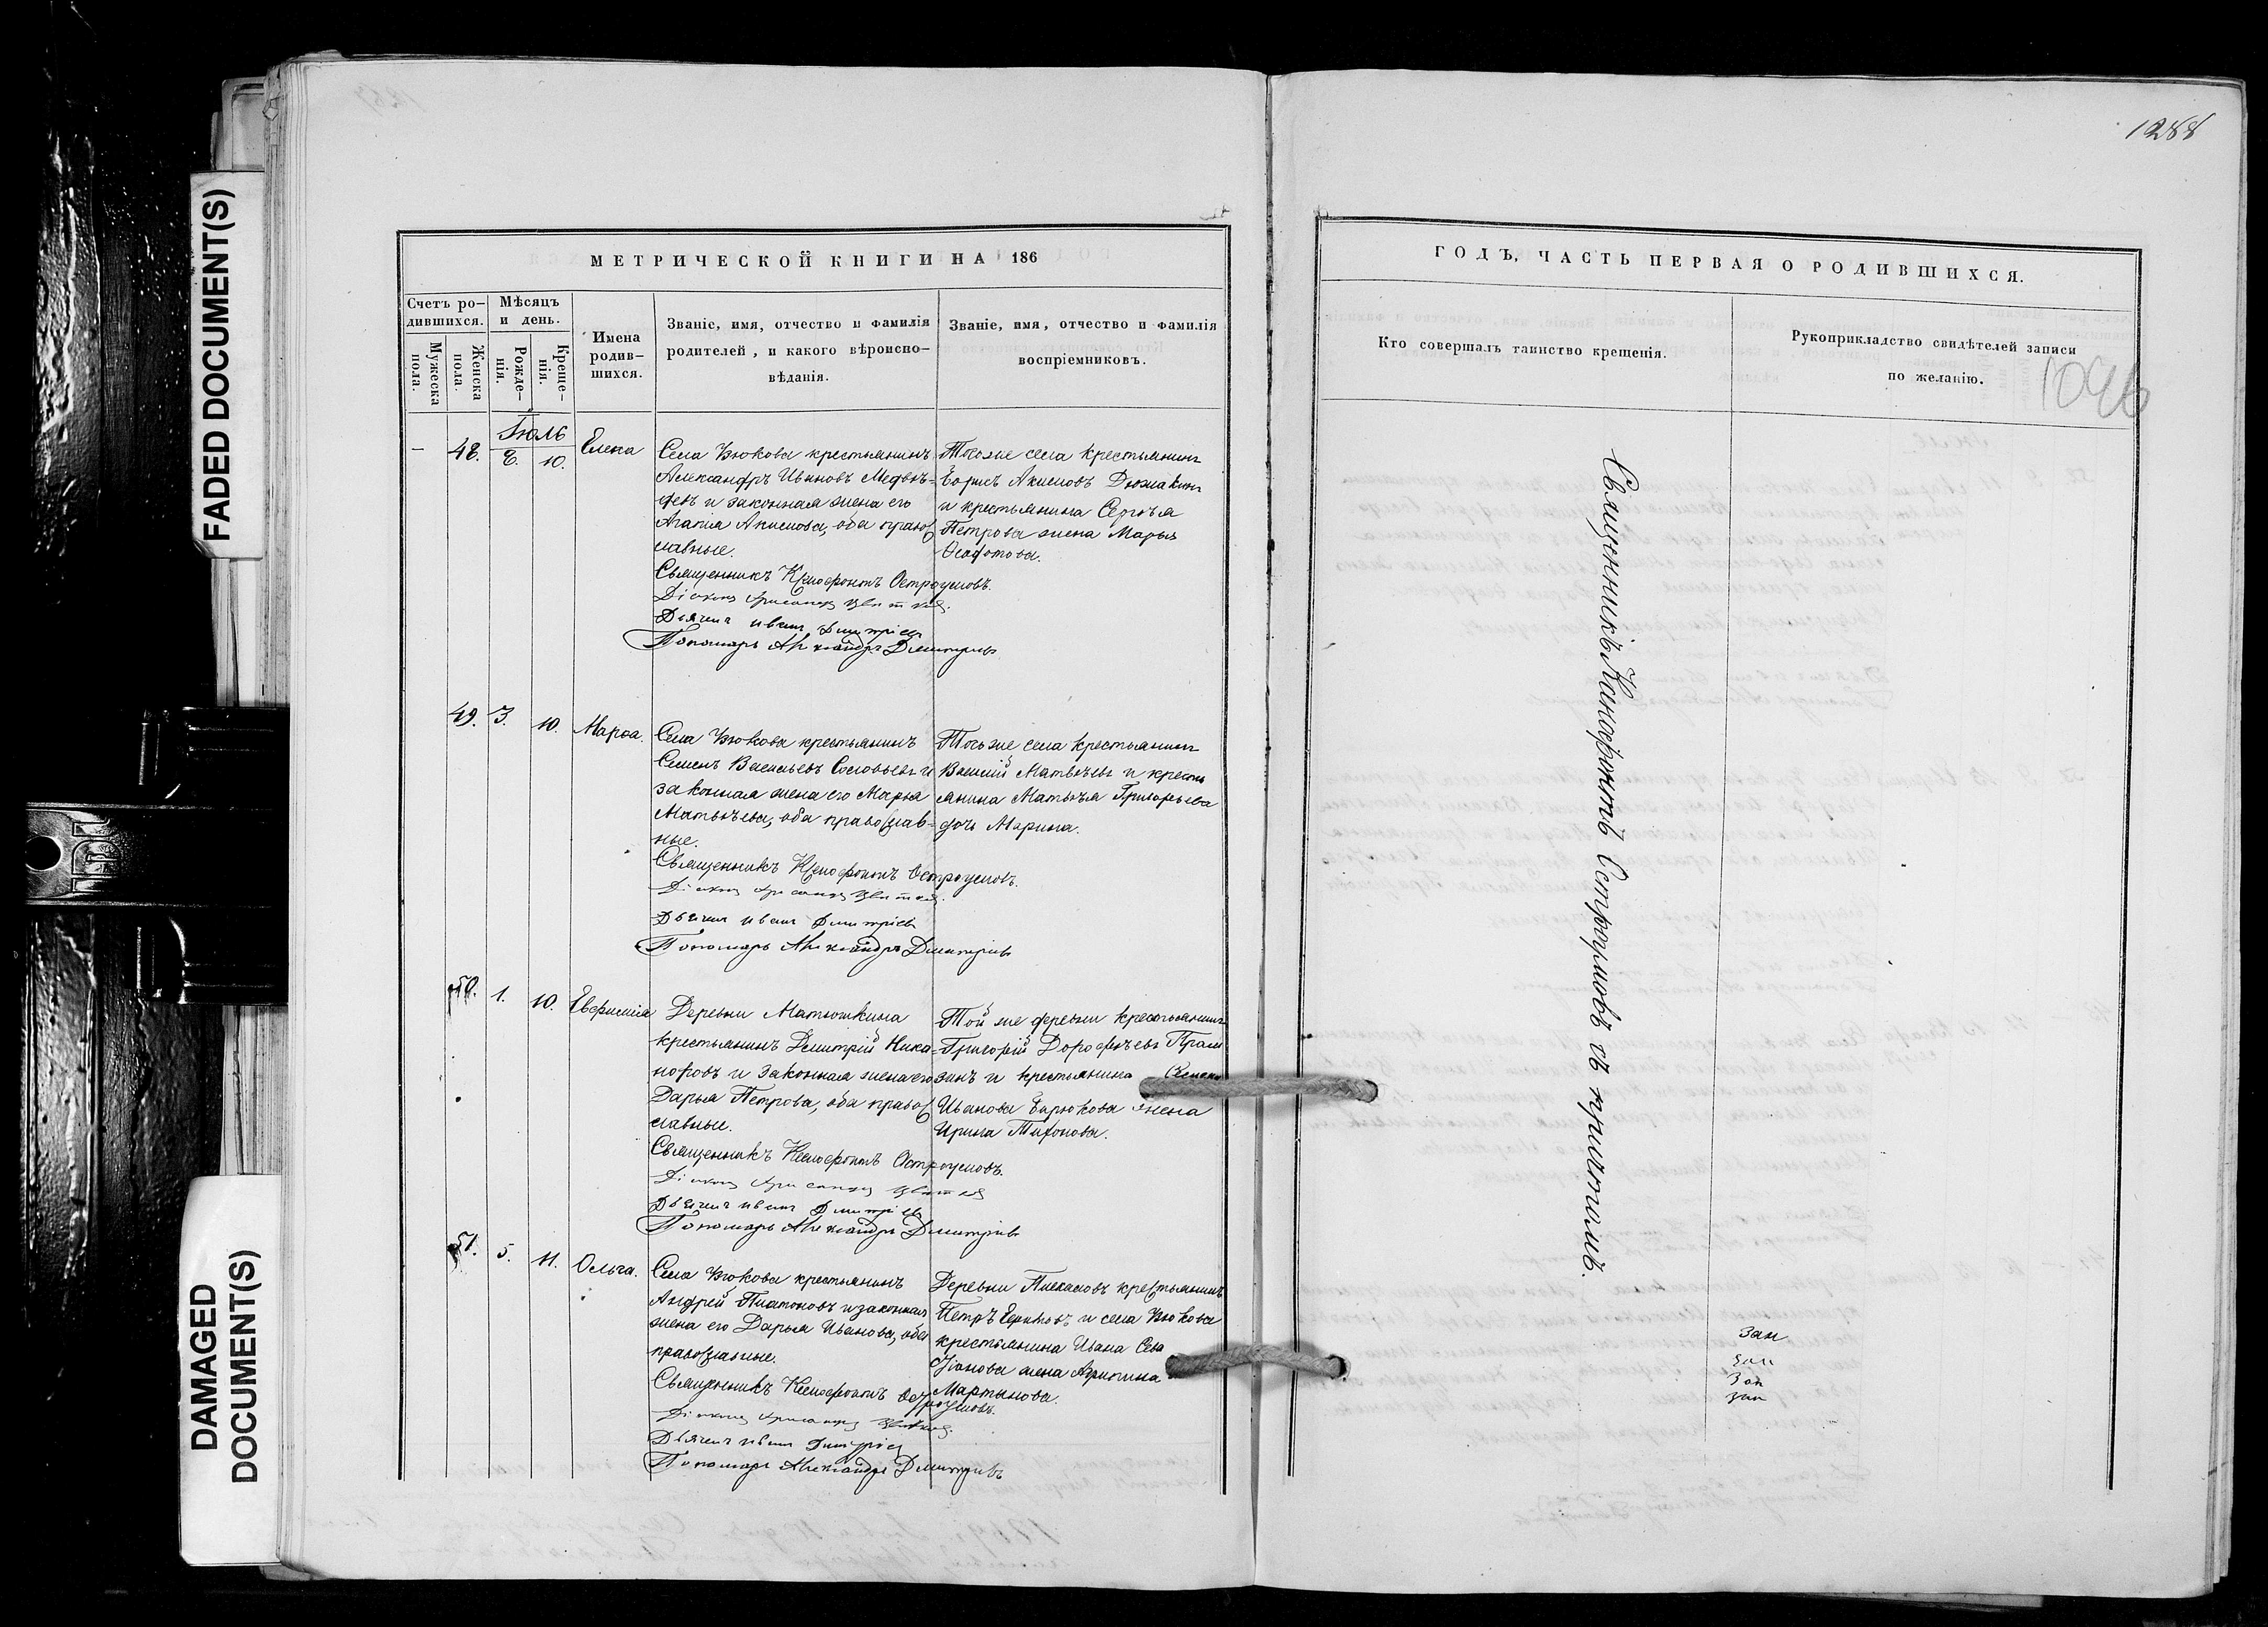 FADED DOCUMENT(S)
DAMAGED
DOCUMENT(S)
1288
1046
МЕТРИЧЕСКОЙ КНИГИ НА 186
Счетъ ро-
дившихся.
Мужеска
пола.
Женска
пола.
Мѣсяцъ
и день.
Рожде-
нія.
Креще-
нія.
Имена
родив-
шихся.
Званіе, имя, отчество и фамилія
родителей, и какого вѣроиспо-
вѣданія.
Званіе, имя, отчество и фамилія
воспріемниковъ.
Іюль
— 48. 8. 10. Елена
Села Вюкова крестьянинъ
Александръ Ивановъ Медвѣ-
девъ и законная жена его
Агапія Акимова, оба право
славные.
Священникъ Ксенофонтъ Остроумовъ.
Діаконъ
Дьячекъ Иванъ Дмитріевъ
Пономарь Александръ Дмитріевъ
Тогоже села крестьянинъ
Борисъ Акимовъ
и крестьянина Сергѣя
Петрова жена Марья
Ѳедотова.
49. 3. 10. Марѳа.
Села Вюкова крестьянинъ
Семенъ Васильевъ Соловьевъ и
законная жена его Марья
Матвѣева, оба православ-
ные.
Священникъ Ксенофонтъ Остроумовъ.
Діаконъ
Дьячекъ Иванъ Дмитріевъ
Пономарь Александръ Дмитріевъ
Тогоже села крестьянинъ
Василій Матвѣевъ и кресть
янина Матвѣя Григорьева
дочь Марина.
50. 1. 10. Евфимія
Деревни Матюшкина
крестьянинъ Дмитрій Ника-
норовъ и законная жена его
Дарья Петрова, оба право
славные.
Священникъ Ксенофонтъ Остроумовъ.
Діаконъ
Дьячекъ Иванъ Дмитріевъ
Пономарь Александръ Дмитріевъ
Той же деревни крестьянинъ
Григорій Дорофѣевъ
и крестьянина Семена
Иванова Бирюкова жена
Ирина Тихонова.
51. 5. 11. Ольга.
Села Вюкова крестьянинъ
Андрей Платоновъ и законная
жена его Дарья Иванова, оба
православные.
Священникъ Ксенофонтъ Остроумовъ.
Діаконъ
Дьячекъ Иванъ Дмитріевъ
Пономарь Александръ Дмитріевъ
Деревни крестьянинъ
Петръ и села Вюкова
крестьянина Ивана
жена Агрипина
Мартынова.
ГОДЪ, ЧАСТЬ ПЕРВАЯ О РОДИВШИХСЯ.
Кто совершалъ таинство крещенія.
Рукоприкладство свидѣтелей записи
по желанію.
Священникъ Ксенофонтъ Остроумовъ съ причтомъ.
зап
зап
зап
зап